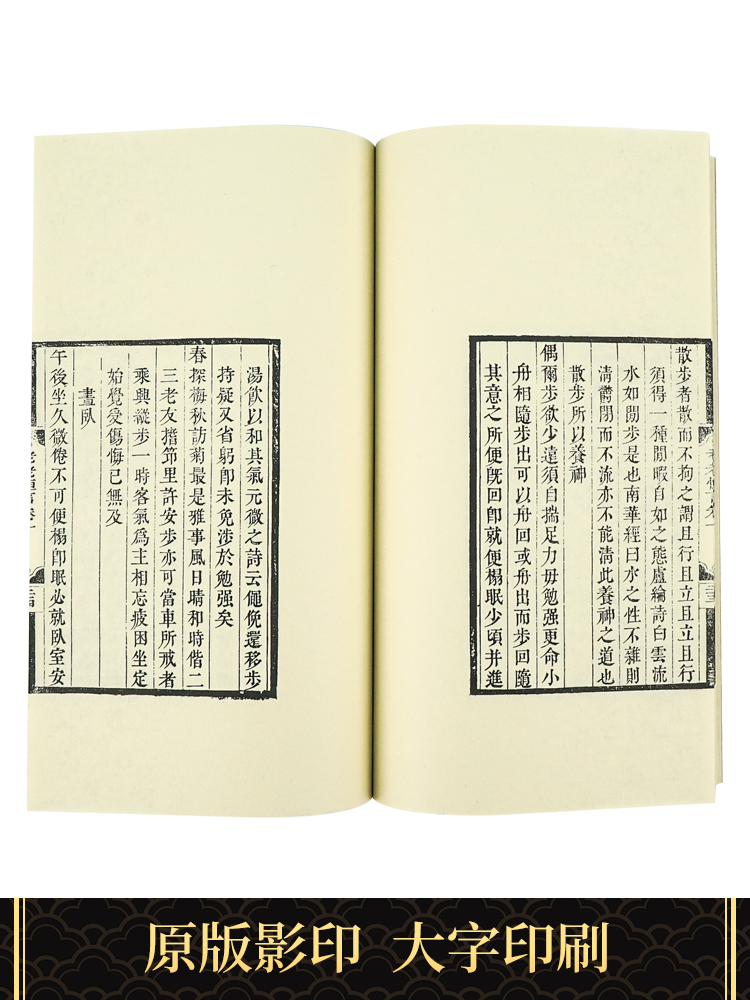 散步者散而不拘之謂且行且立且立且行
須得一種閒暇自如之態盧綸詩白雲流
水如閒步是也南華經曰水之性不雜則
清鬱閉而不流亦不能清此養神之道也
散步所以養神
偶爾步欲少遠須自揣足力毋勉强更命小
舟相隨步出可以舟回或舟出而步回隨
其意之所便旣回卽就便榻眠少頃并進
湯飲以和其氣元微之詩云僶俛還移步
持疑又省躬卽未免涉於勉强矣
春探梅秋訪菊最是雅事風日晴和時偕二
三老友搘筇里許安步亦可當車所戒者
乘興縱步一時客氣爲主相忘疲困坐定
始覺受傷悔已無及
晝臥
午後坐久微倦不可便榻卽眠必就臥室安
原版影印 大字印刷